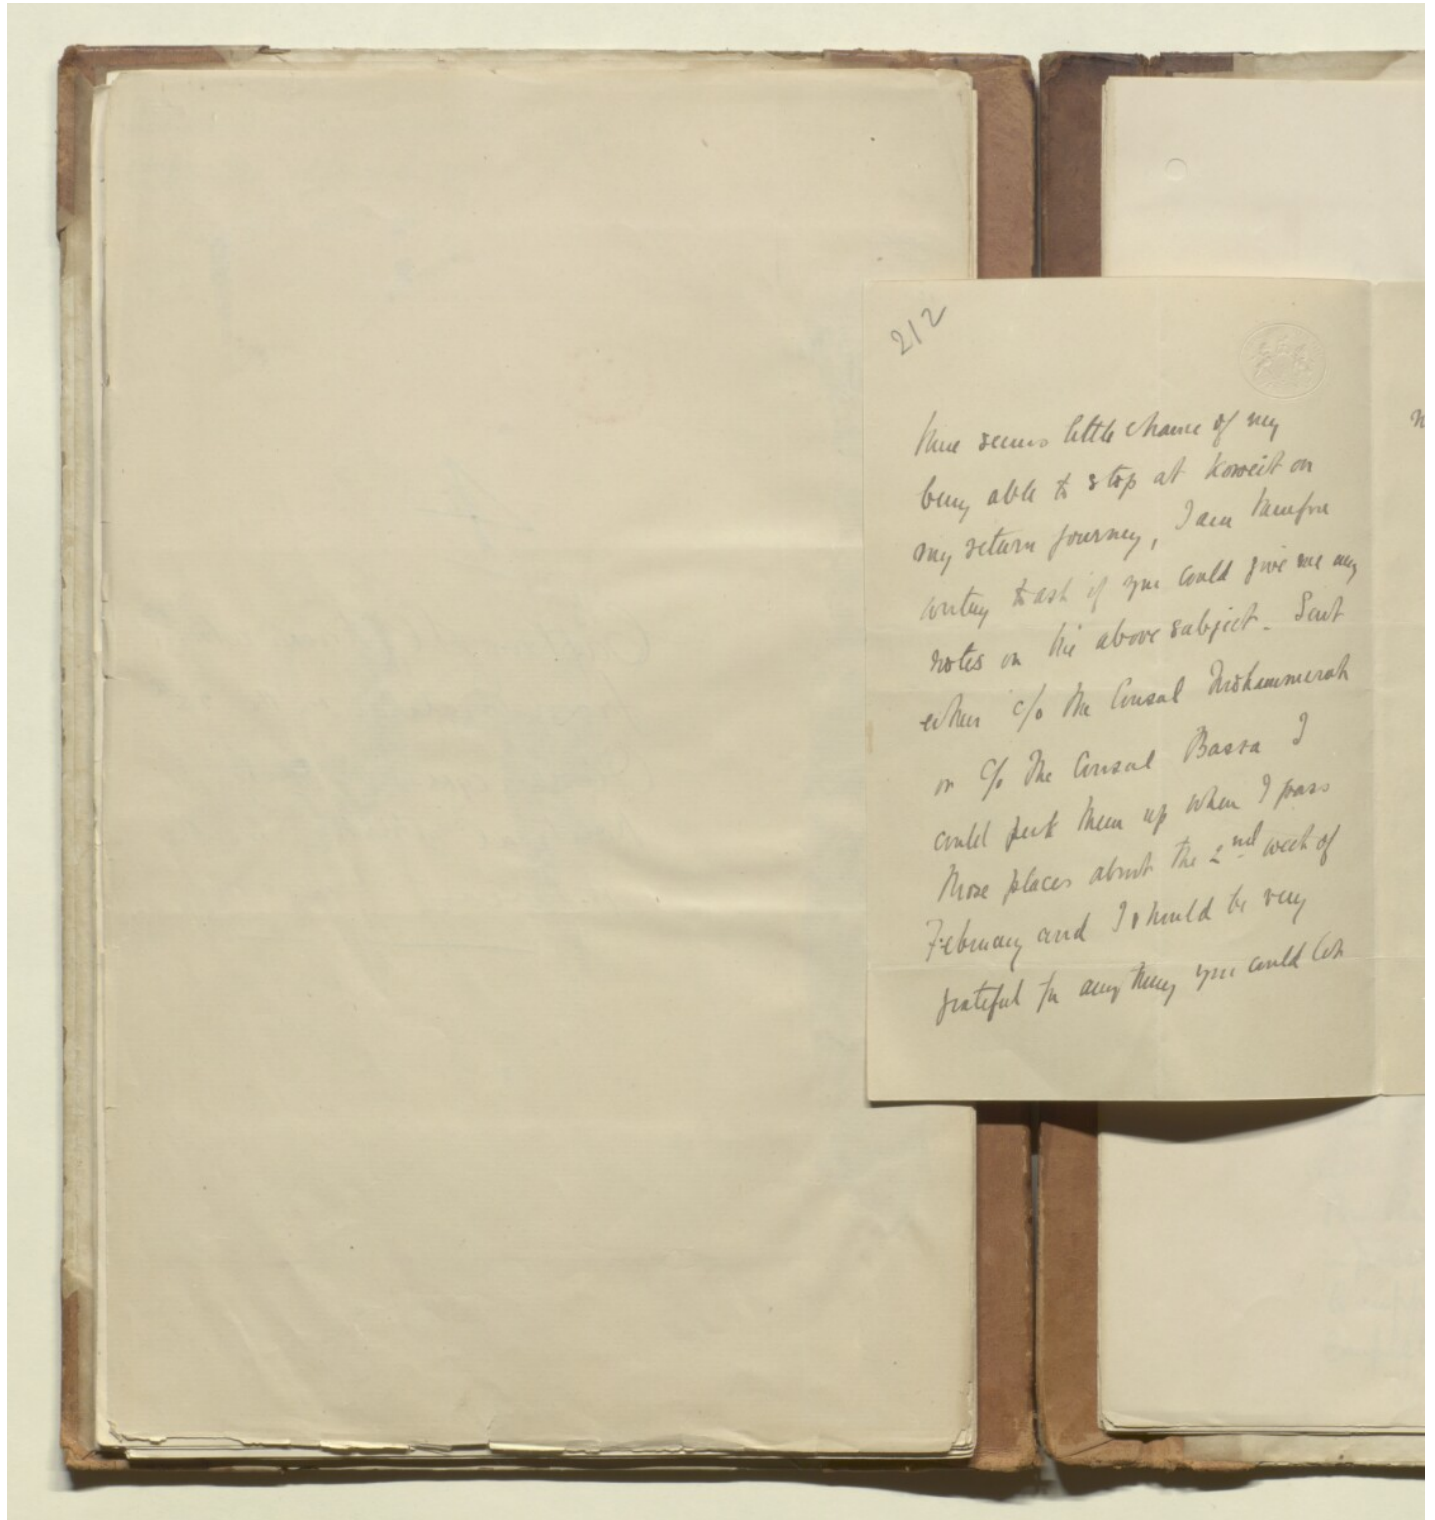 212
there seems little chance of my
being able to stop at Koweit on
my return journey, I am therefore
writing to ask if you could give me any
notes on the above subject. Sent
either c/o the Consul Mohammerah
or c/o the Consul Basra I
could pick them up when I pass
those places about the 2nd week of
February and I should be very
grateful for anything you could